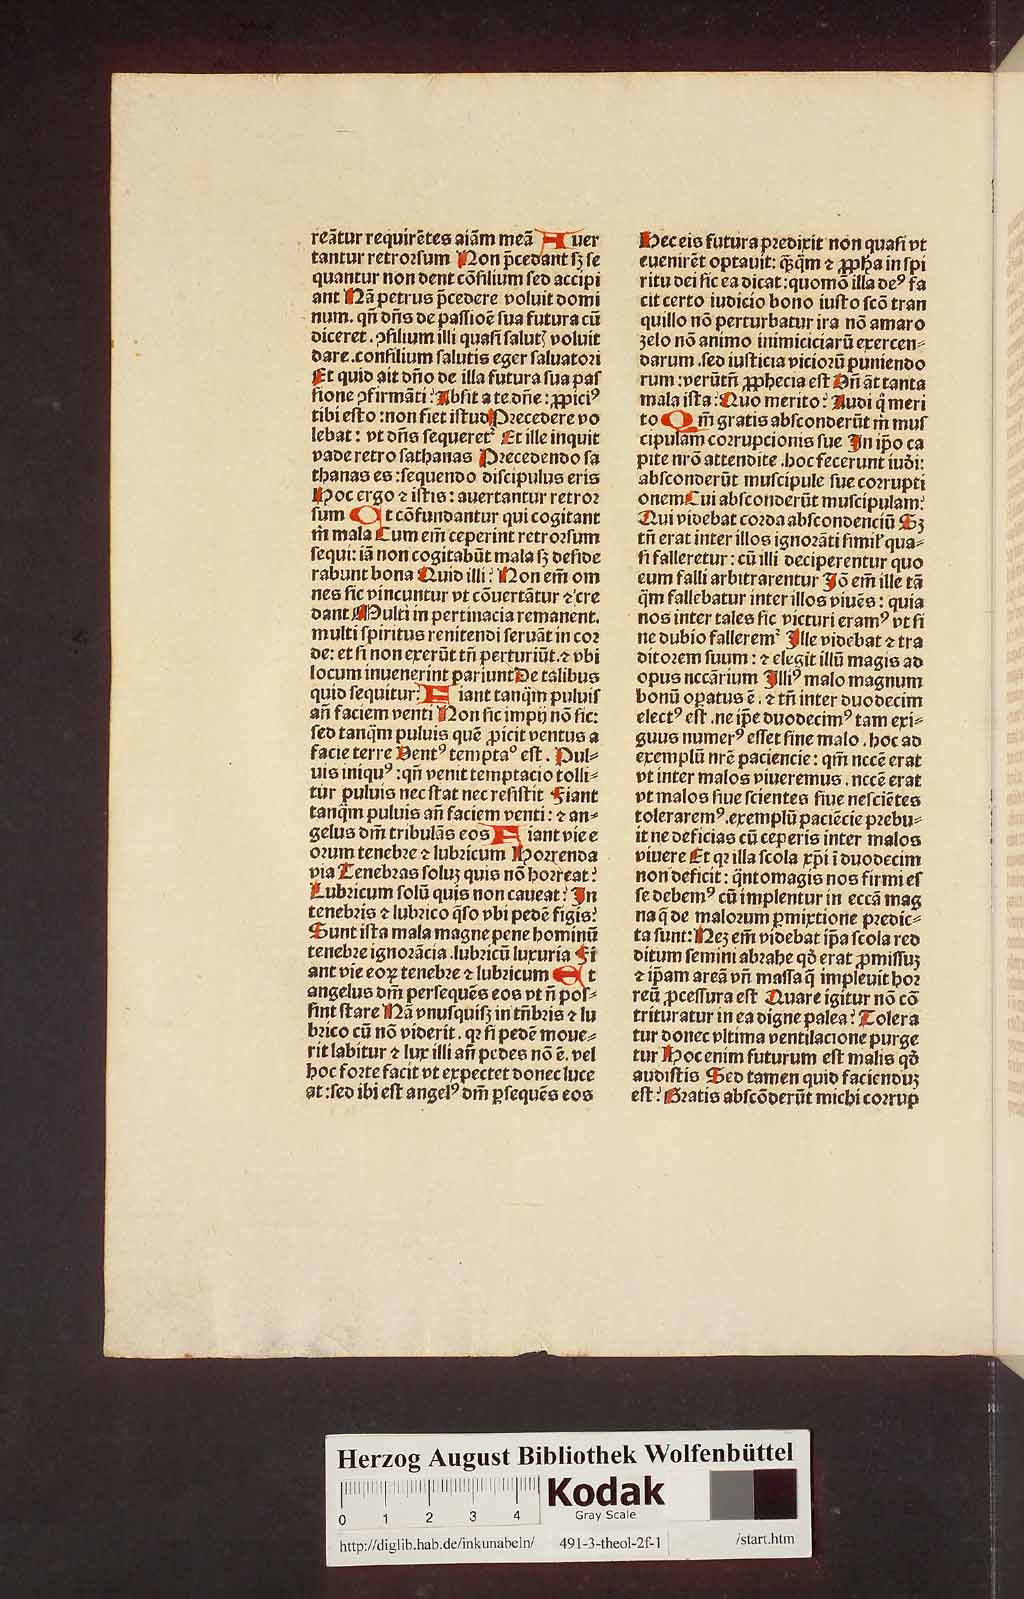 reãtur requirẽtes aiãm meã Auer
tantur retrorsum Non p̄cedant sꝫ se
quantur non dent cõsilium sed accipi
ant Nã petrus p̄cedere voluit domi
num. qñ dñs de passioẽ sua futura cũ
diceret. ꝯsilium illi quasi salutꝭ voluit
dare .consilium salutis eger saluatori
Et quid ait dño de illa futura sua pas
sione ꝯfirmãti? Absit a te dñe: ꝓpiciꝰ
tibi esto: non fiet istud Precedere vo
lebat: vt dñs sequeret᷒ Et ille inquit
vade retro sathanas Precedendo sa
thanas es: sequendo discipulus eris
Hoc ergo ⁊ istis: auertantur retror
sum Et cõfundantur qui cogitant
m̄ mala Cum em̄ ceperint retrorsum
sequi: iã non cogitabũt mala sꝫ deside
rabunt bona Quid illi? Non em̄ om
nes sic vincuntur vt cõuertãtur ⁊ cre
dant Multi in pertinacia remanent.
multi spiritus renitendi seruãt in cor
de: et si non exerũt tñ perturiũt. ⁊ vbi
locum inuenerint pariunt De talibus
quid sequitur? Fiant tanq̃m puluis
añ faciem venti Non sic impij nõ sic:
sed tanq̃m puluis quẽ ꝓicit ventus a
facie terre Ventꝰ temptaᵒ est. Pul-
uis iniquꝰ: qñ venit temptacio tolli-
tur puluis nec stat nec resistit Fiant
tanq̃m puluis añ faciem venti: ⁊ an-
gelus dñi tribulãs eos Fiant vie e
orum tenebre ⁊ lubricum Horrenda
via Tenebras soluꝫ quis nõ horreat?
Lubricum solũ quis non caueat? In
tenebris ⁊ lubrico q̃so vbi pedẽ figis?
Sunt ista mala magne pene hominũ
tenebre ignorãcia .lubricũ luxuria Fi
ant vie eoꝝ tenebre ⁊ lubricum Et
angelus dñi persequẽs eos vt ñ pos-
sint stare Nã vnusquisꝫ in tñbris ⁊ lu
brico cũ nõ viderit. qꝛ si pedẽ moue-
rit labitur ⁊ lux illi añ pedes nõ ẽ. vel
hoc forte facit vt expectet donec luce
at: sed ibi est angelꝰ dñi ꝑsequẽs eos
Hec eis futura predixit non quasi vt
euenirẽt optauit: q̃ꝫq̃m ⁊ ꝓpha in spi
ritu dei sic ea dicat: quomõ illa deꝰ fa
cit certo iudicio bono iusto scõ tran
quillo nõ perturbatur ira nõ amaro
zelo nõ animo inimiciciarũ exercen-
darum .sed iusticia vicioꝝ puniendo
rum: verũtñ ꝓphecia est Uñ ãt tanta
mala ista? Quo merito? Audi q̃ meri
to Qm̃ gratis absconderũt m̄ mus
cipulam corrupcionis sue In ip̃o ca
pite nrõ attendite .hoc fecerunt iud̃i:
absconderũt muscipule sue corrupti
onem Cui absconderũt muscipulam?
Qui videbat corda abscondenciũ Sꝫ
tñ erat inter illos ignorãti simil̃ qua-
si falleretur: cũ illi deciperentur quo
eum falli arbitrarentur Iõ em̄ ille tã
q̃m fallebatur inter illos viuẽs: quia
nos inter tales sic victuri eramꝰ vt si
ne dubio fallerem᷒ Ille videbat ⁊ tra
ditorem suum: ⁊ elegit illũ magis ad
opus nccãrium Illiꝰ malo magnum
bonũ opatus ẽ. ⁊ tñ inter duodecim
electꝰ est .ne ip̃e duodecimꝰ tam exi-
guus numerꝰ esset sine malo .hoc ad
exemplũ nrẽ paciencie: qm̃ nccẽ erat
vt inter malos viueremus .nccẽ erat
vt malos siue scientes siue nesciẽtes
toleraremꝰ.exemplũ paciẽcie prebu-
it ne deficias cũ ceperis inter malos
viuere Et qꝛ illa scola xp̃i ĩ duodecim
non deficit: q̃nto magis nos firmi es
se debemꝰ cũ implentur in ecc̃a mag
na q̃ de malorum ꝑmixtione predic-
ta sunt? Neꝫ em̄ videbat ip̃a scola red
ditum semini abrahe qd̃ erat ꝓmissuꝫ
⁊ ip̃am areã vñ massa q̃ impleuit hor
reũ ꝓcessura est Quare igitur nõ cõ
trituratur in ea digne palea? Tolera
tur donec vltima ventilacione purge
tur Hoc enim futurum est malis qd̃
audistis Sed tamen quid facienduꝫ
est? Gratis abscõderũt michi corrup
Herzog August Bibliothek Wolfenbüttel
0 1 2 3 4
Kodak
Gray Scale
http://diglib.hab.de/inkunabeln/ 491-3-theol-2f-1 /start.htm